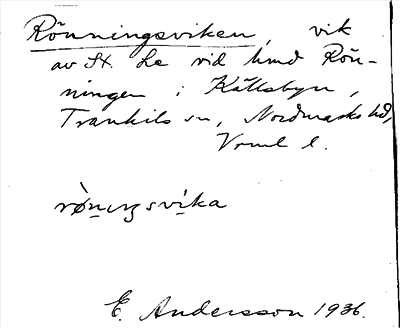 Rönningsviken, vik
av St. Le vid hmd Rön-
ningen i Källsbyn,
Trankils sn, Nordmarks hd,
Vrml l.
E. Andersson 1936.